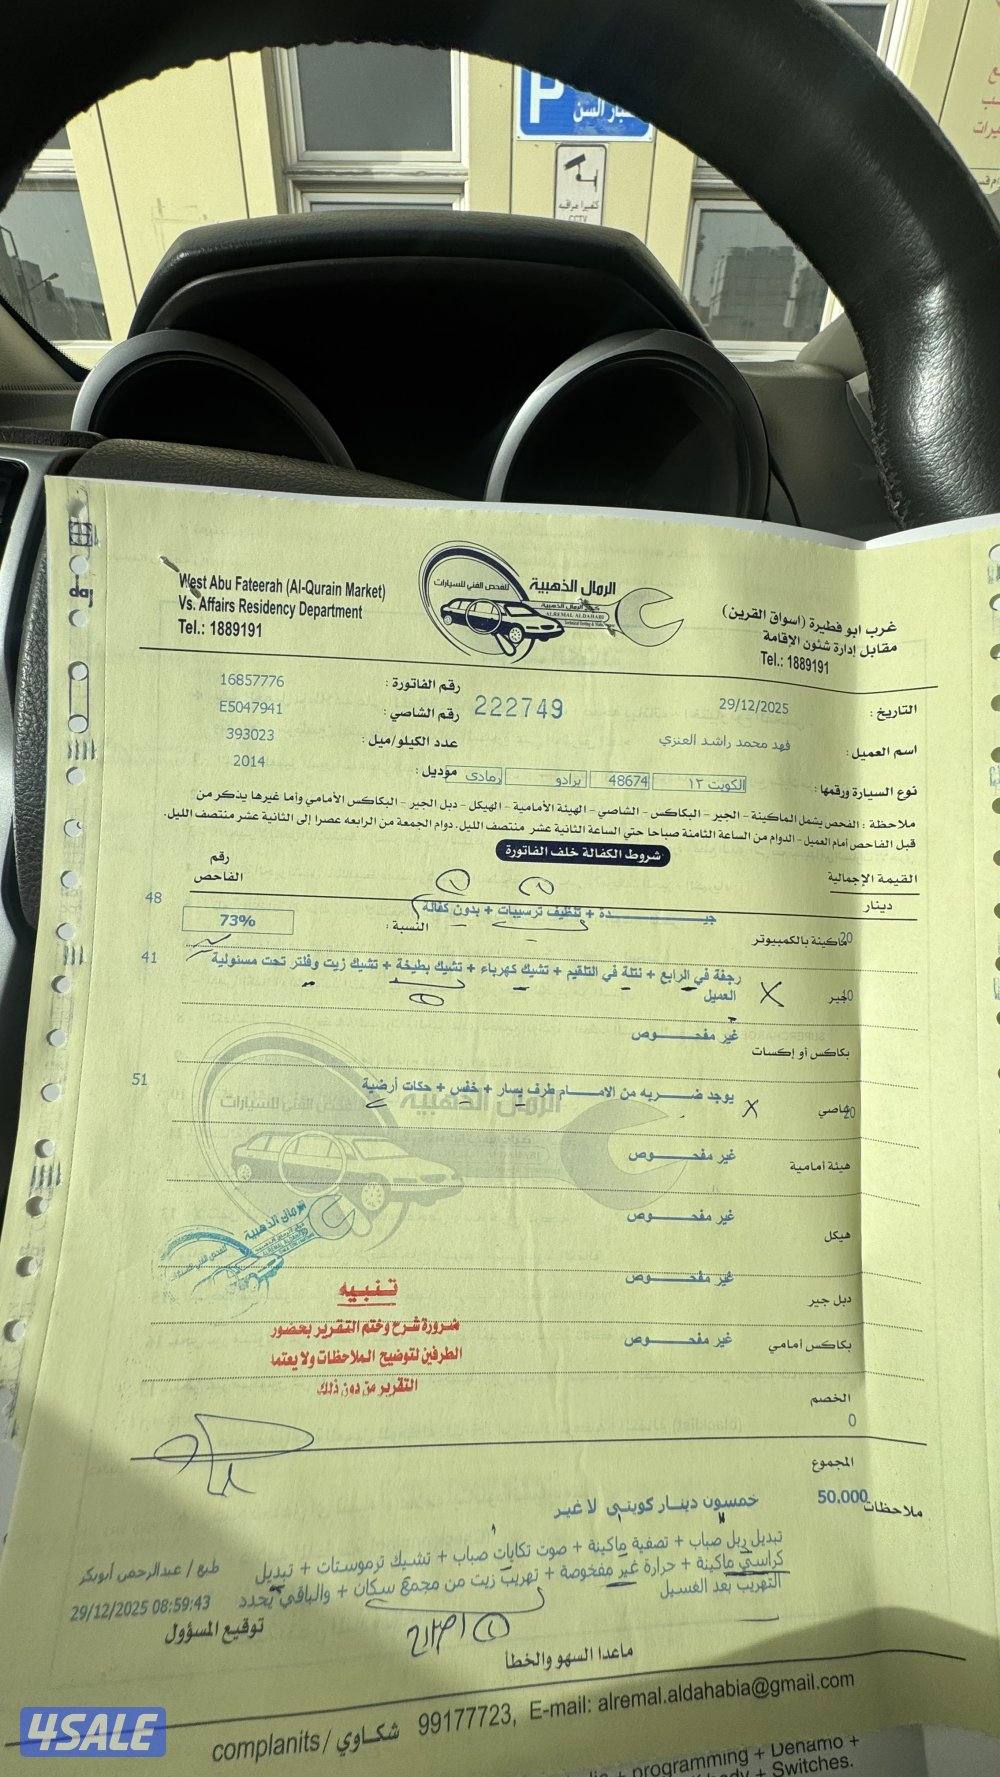 P
كبار السن
كميرا مراقبه
CCTV
West Abu Fateerah (Al-Qurain Market)
Vs. Affairs Residency Department
Tel.: 1889191
الرمال الذهبية
للفحص الفني للسيارات
ALREMAL ALDAHABI
غرب ابو فطيرة (اسواق القرين)
مقابل إدارة شئون الإقامة
Tel.: 1889191
التاريخ : 29/12/2025
222749
رقم الفاتورة : 16857776
رقم الشاصي : E5047941
اسم العميل : فهد محمد راشد العنزي
عدد الكيلو/ميل : 393023
نوع السيارة ورقمها : الكويت ١٣ 48674 برادو رمادي
موديل : 2014
ملاحظة : الفحص يشمل الماكينة - الجير - البكاكس - الشاصي - الهيئة الأمامية - الهيكل - دبل الجير - البكاكس الأمامي وأما غيرها يذكر من
قبل الفاحص أمام العميل - الدوام من الساعة الثامنة صباحا حتي الساعة الثانية عشر منتصف الليل. دوام الجمعة من الرابعه عصرا إلى الثانية عشر منتصف الليل.
شروط الكفالة خلف الفاتورة
القيمة الإجمالية
دينار
رقم
الفاحص
48
جيــدة + تنظيف ترسيبات + بدون كفالة
ماكينة بالكمبيوتر 20
النسبة : 73%
41
رجفة في الرابع + نتلة في التلقيم + تشيك كهرباء + تشيك بطيخة + تشيك زيت وفلتر تحت مسئولية
العميل
جير 10
غير مفحــوص
بكاكس أو إكسات
51
يوجد ضــربه من الامــام طرف يسار + خفس + حكات أرضية
شاصي 20
غير مفحــوص
هيئة أمامية
غير مفحــوص
هيكل
غير مفحــوص
دبل جير
غير مفحــوص
بكاكس أمامي
تنبيه
ضرورة شرح وختم التقرير بحضور
الطرفين لتوضيح الملاحظات ولا يعتما
التقرير من دون ذلك
الخصم
0
المجموع
50.000
خمسون دينـار كويتي لا غير
ملاحظات
تبديل ربل صباب + تصفية ماكينة + صوت تكايات صباب + تشيك ترموستات + تبديل
كراسي ماكينة + حرارة غير مفحوصة + تهريب زيت من مجمع سكان + والباقي يحدد
التهريب بعد الغسيل
طبع / عبدالرحمن أبوبكر
29/12/2025 08:59:43
توقيع المسؤول
ماعدا السهو والخطأ
complanits / شكاوي 99177723, E-mail: alremal.aldahabia@gmail.com
programming + Denamo +
body + Switches.
4SALE